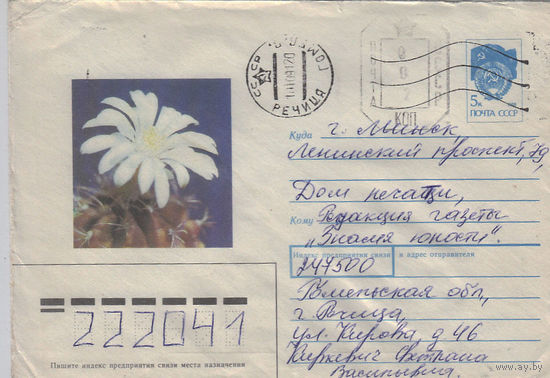 СССР
ГОМЕЛ. О.
РЕЧИЦА
ПОЧТА
СССР
КОП
5к
ПОЧТА СССР
Куда г. Минск,
Ленинский проспект, 79,
Дом печати,
Кому Редакция газеты
"Знамя юности".
Индекс предприятия связи и адрес отправителя
247500
Гомельская обл.,
г. Речица,
ул. Кирова, д 46
Васильевна.
222041
Пишите индекс предприятия связи места назначения
www.ay.by